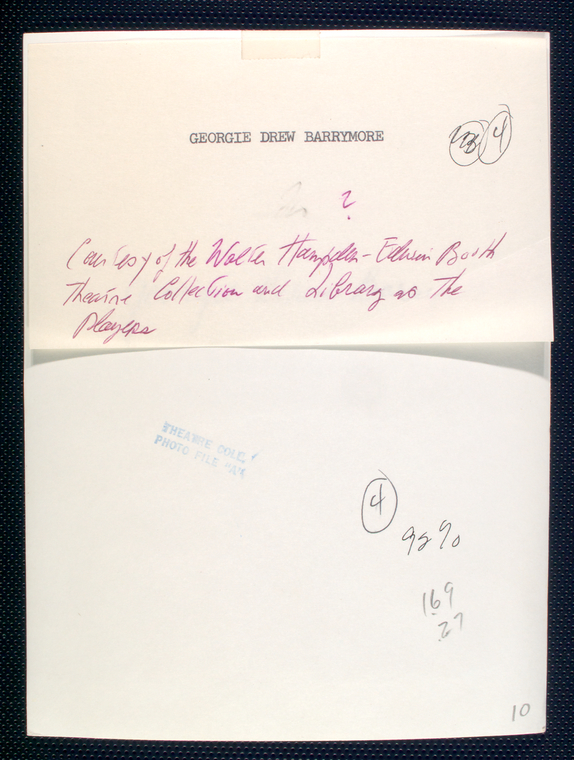 GEORGIE DREW BARRYMORE
4
?
Courtesy of the Walter Hampden-Edwin Booth
Theatre Collection and Library as The
Players
THEATRE COLL.
PHOTO FILE "A"
4
92%
169
27
10